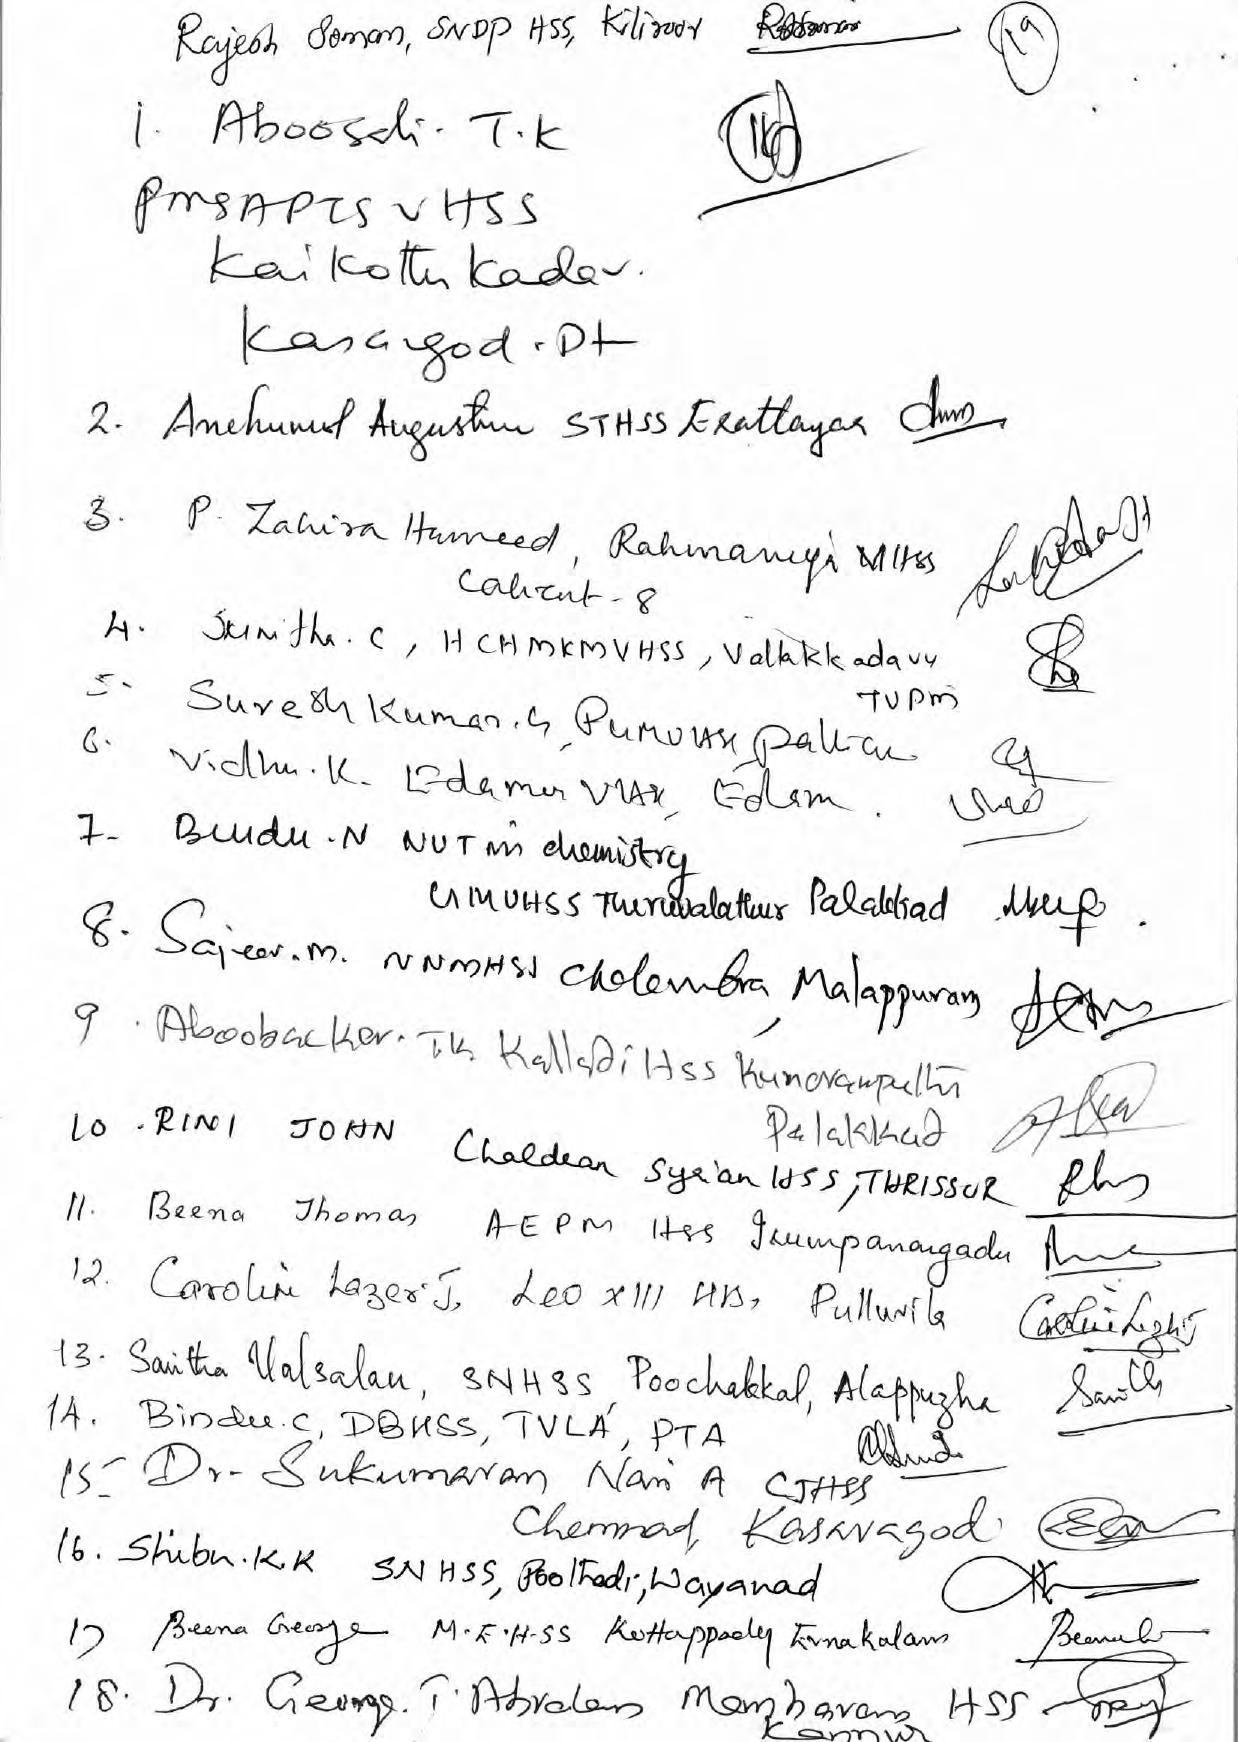 Rajesh Soman, SNDP HSS, Kiliroor
19
1. Aboosali. T.K
PMSAPTS VHSS
Kaikottukadav.
Kasargod. Dt
2. Augustine STHSS Erattayar
3. P. Zahira Hameed, Rahmaniya HSS
Calicut - 8
4. Sunitha. C, HCHMKMVHSS, Vallakkadavu
TVPM
5. Suresh Kumar. G,
6. Vidhu. K.
7- Bindu. N chemistry
GMVHSS Thiruvalathur Palakkad
8. Sajeer. M. NNMHSS Chelembra, Malappuram
9. Aboobacker. T.K. Kalladi HSS
Palakkad
10. RINI JOHN Chaldean Syrian HSS, THRISSUR
11. Beena Thomas AEPM HSS Irumpanangadu
12. Caroline Lazer J, Leo XIII HSS, Pulluvila
13. Sanitha Valsalan, SNHSS, Poochakkal, Alappuzha
14. Bindu. C, DBHSS, TVLA, PTA
15 Dr. Sukumaran Nair A CJHSS
Chemnad, Kasaragod
16. Shibu. K.K SNHSS, Poothadi, Wayanad
17 Beena George M.E.H.SS Kottappady Ernakulam
18. Dr. George. T. Abraham Mambaram HSS
Kannur